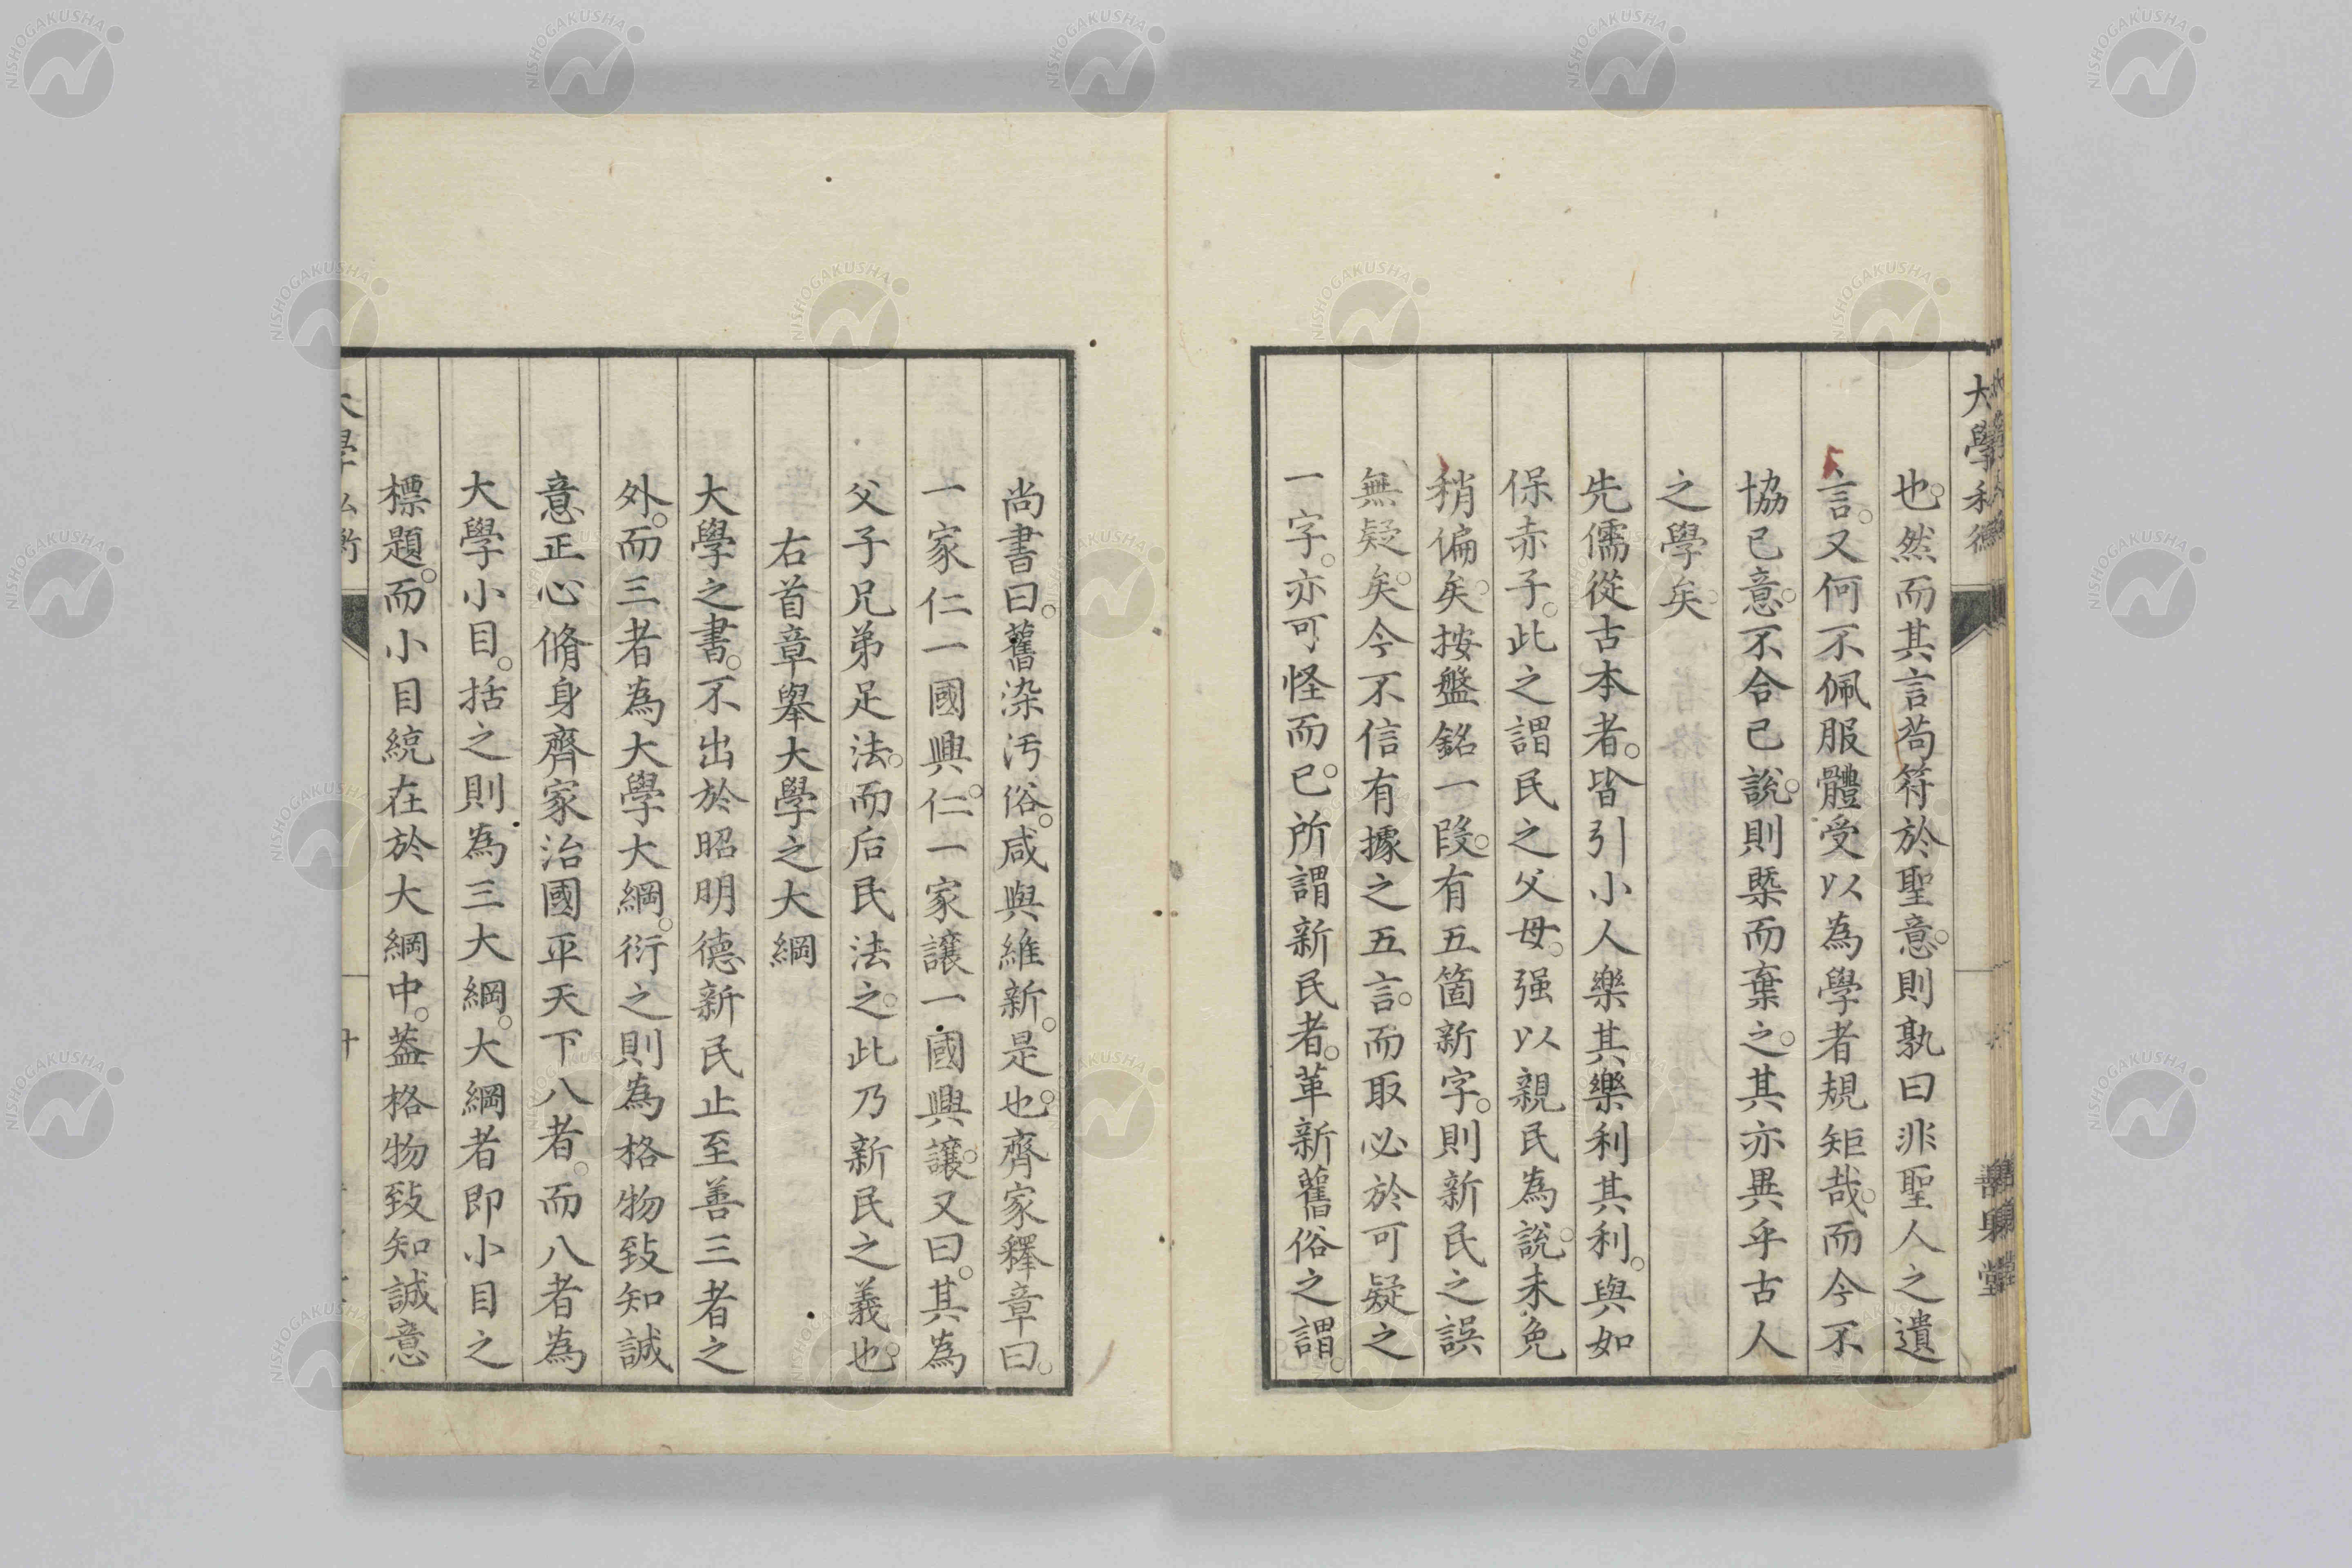 也。然而其言苟符於聖意。則孰曰非聖人之遺
言。又何不佩服體受以為學者規矩哉。而今不
協己意。不合己說。則槩而棄之。其亦異乎古人
之學矣。
先儒從古本者。皆引小人樂其樂利其利。與如
保赤子。此之謂民之父母。强以親民為說。未免
稍偏矣。按盤銘一段。有五箇新字。則新民之誤
無疑矣。今不信有據之五言。而取必於可疑之
一字。亦可怪而已。所謂新民者。革新舊俗之謂。
尚書曰。舊染汚俗。咸與維新。是也。齊家釋章曰。
一家仁一國興。仁。一家讓一國興讓。又曰。其為
父子兄弟足法。而后民法之。此乃新民之義也。
右首章擧大學之大綱
大學之書。不出於昭明德新民止至善三者之
外。而三者為大學大綱。衍之則為格物致知誠
意正心脩身齊家治國平天下八者。而八者為
大學小目。括之則為三大綱。大綱者即小目之
標題。而小目統在於大綱中。葢格物致知誠意
NISHOGAKUSHA